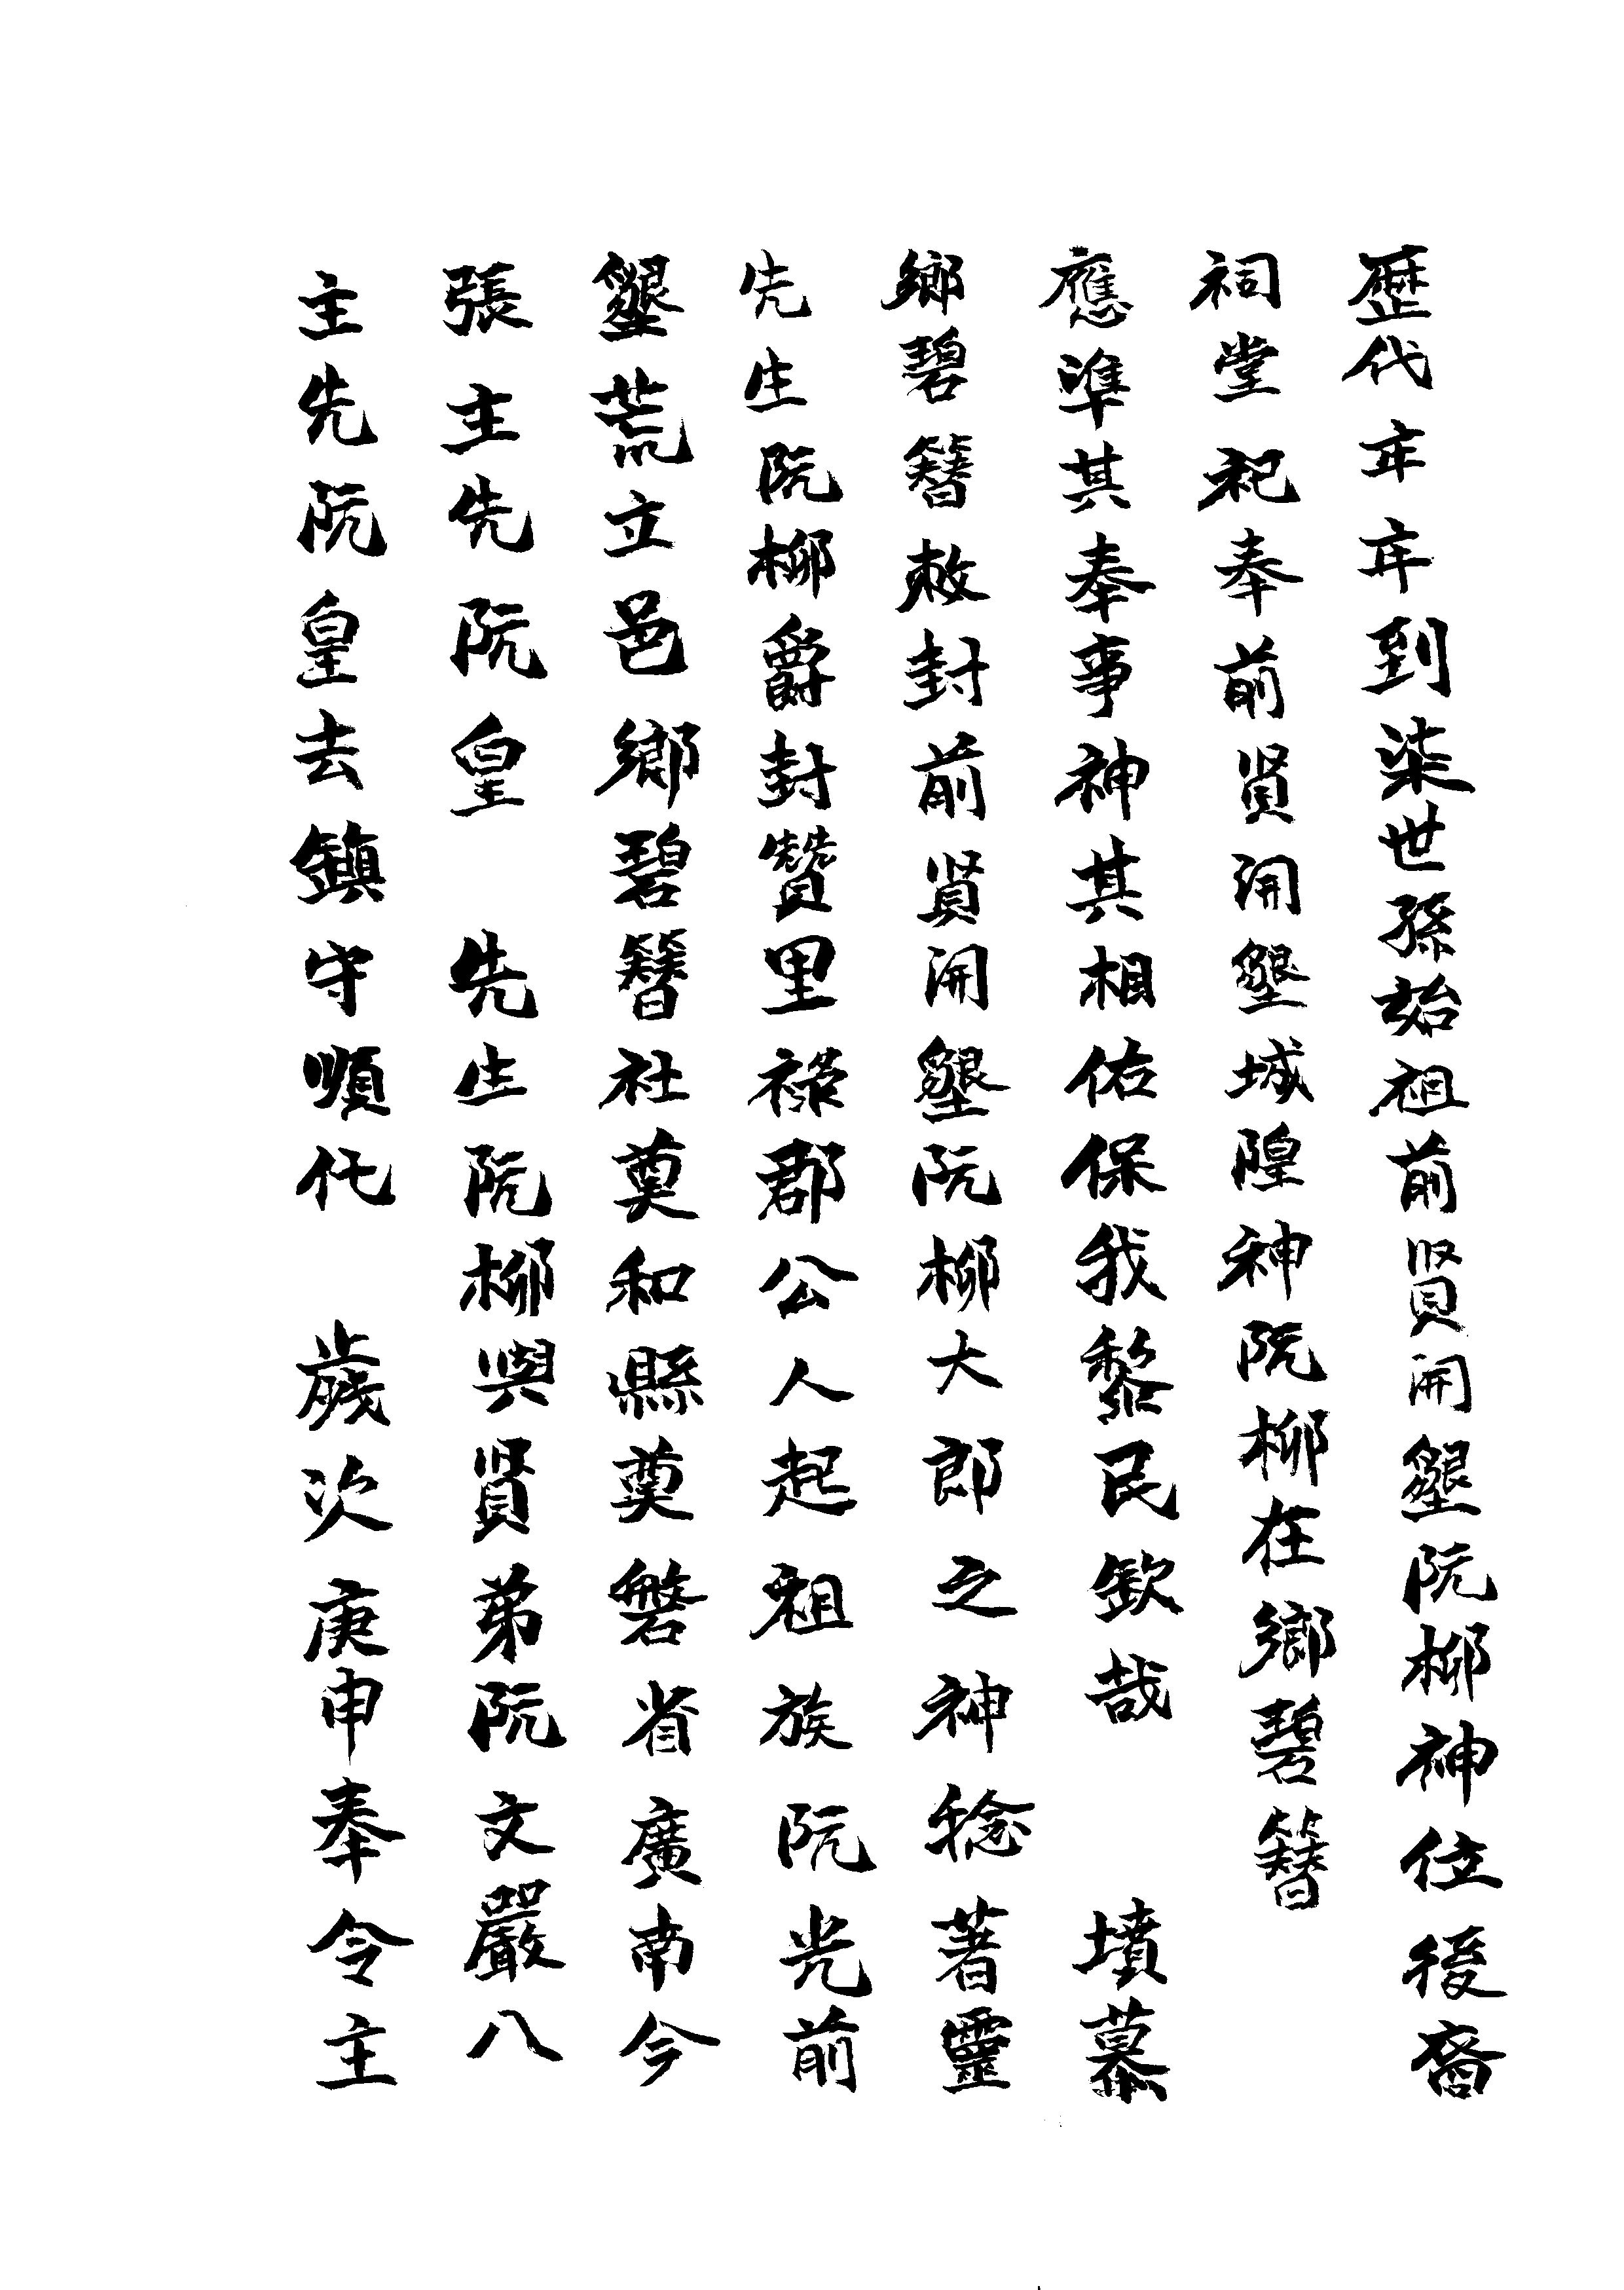 歷代年年到柒世孫始祖前賢開墾阮柳神位後裔
祠堂祀奉前賢開墾城隍神阮柳在鄉碧簪
應準其奉事神其相佑保我黎民欽哉 墳慕
鄉碧簪敕封前賢開墾阮柳大郎之神稔著靈
先生阮柳爵封贊里祿郡公人起祖族阮光前
墾荒立邑鄉碧簪社奠和縣奠磐省廣南今
張主先阮皇 先生阮柳與賢弟阮文嚴八
主先阮皇去鎮守順化 歲次庚申奉令主